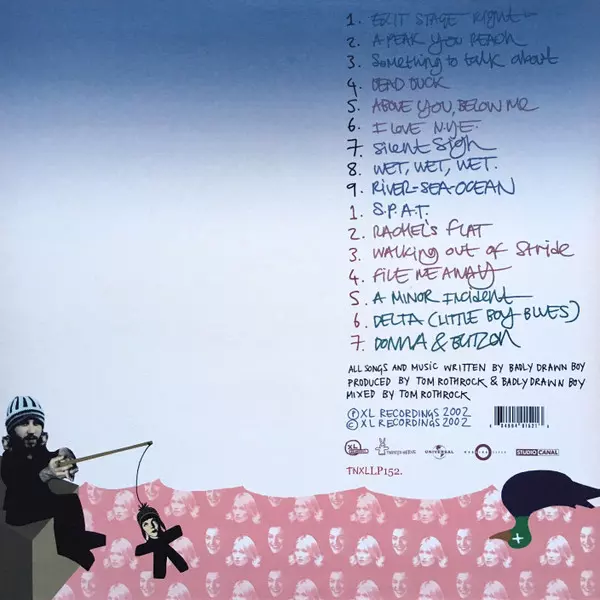 1. EXIT STAGE Right
2. A PEAK YOU REACH
3. Something to talk about
4. DEAD DUCK
5. ABOVE YOU, BELOW ME
6. I LOVE N.Y.E.
7. Silent Sigh
8. WET, WET, WET.
9. RIVER-SEA-OCEAN
1. S.P.A.T.
2. RACHEL'S FLAT
3. WALKING OUT OF Stride
4. FILE ME AWAY
5. A MINOR INCIDENT
6. DELTA (LITTLE BOY BLUES)
7. DONNA & BLITZEN
ALL SONGS AND MUSIC WRITTEN BY BADLY DRAWN BOY
PRODUCED BY TOM ROTHROCK & BADLY DRAWN BOY
MIXED BY TOM ROTHROCK
Ⓟ XL RECORDINGS 2002
© XL RECORDINGS 2002
XL
UNIVERSAL
STUDIO CANAL
TNXLLP152.